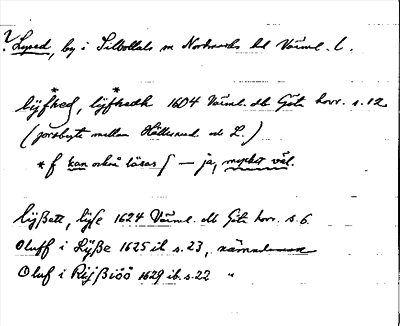 ? Lysed, by i Silbodals sn Nordmarks hd Värml. l.
lijfked, lijfkedh 1604 Värml. hb Göte horr. s. 12
(jordbyte mellan Hällesrud och L.)
* f kan också läsas ſ — ja, mycket väl.
lijßett, lijſe 1624 Värml. hb Göte horr. s. 6
Oluff i Lÿße 1625 ib s. 23, nämndeman
Oluf i Rijßiöö 1629 ib. s. 22 "